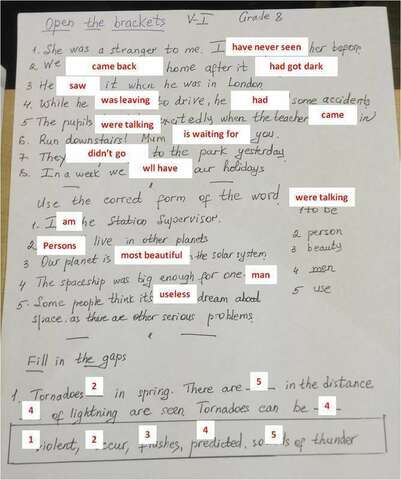 Open the brackets V-I Grade 8
1. She was a stranger to me. I have never seen her before
2 We came back home after it had got dark
3 He saw it when he was in London
4. While he was leaving to drive, he had some accidents
5 The pupils were talking excitedly when the teacher came in
6. Run downstairs! Mum is waiting for you.
7 They didn't go to the park yesterday
8. In a week we wll have our holidays
Use the correct form of the word were talking
1. I am he Station Supervisor. 1 to be
2 Persons live in other planets 2 person
3 Our planet is most beautiful in the solar system 3 beauty
4 The spaceship was big enough for one man 4 men
5. Some people think it's useless dream about 5 use
space. as there are other serious problems
Fill in the gaps
1. Tornadoes 2 in spring. There are 5 in the distance
4 of lightning are seen Tornadoes can be 4
1 violent, 2 occur, 3 flashes, 4 predicted, 5 sounds of thunder